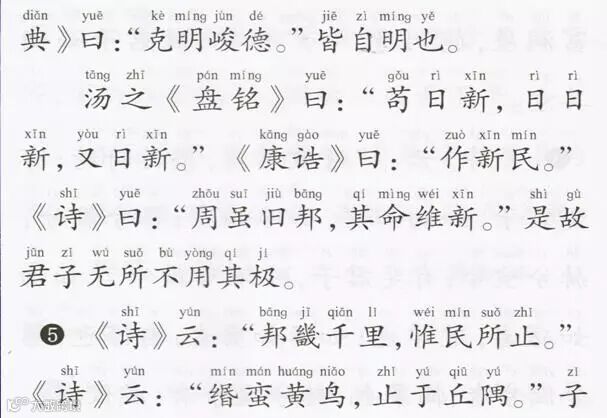 diǎn yuē kè míng jùn dé jiē zì míng yě
典》曰：“克明峻德。”皆自明也。
tāng zhī pán míng yuē gǒu rì xīn rì rì
汤之《盘铭》曰：“苟日新，日日
xīn yòu rì xīn kāng gào yuē zuò xīn mín
新，又日新。”《康诰》曰：“作新民。”
shī yuē zhōu suī jiù bāng qí mìng wéi xīn shì gù
《诗》曰：“周虽旧邦，其命维新。”是故
jūn zǐ wú suǒ bù yòng qí jí
君子无所不用其极。
shī yún bāng jī qiān lǐ wéi mín suǒ zhǐ
❺《诗》云：“邦畿千里，惟民所止。”
shī yún mín mán huáng niǎo zhǐ yú qiū yú zǐ
《诗》云：“缗蛮黄鸟，止于丘隅。”子